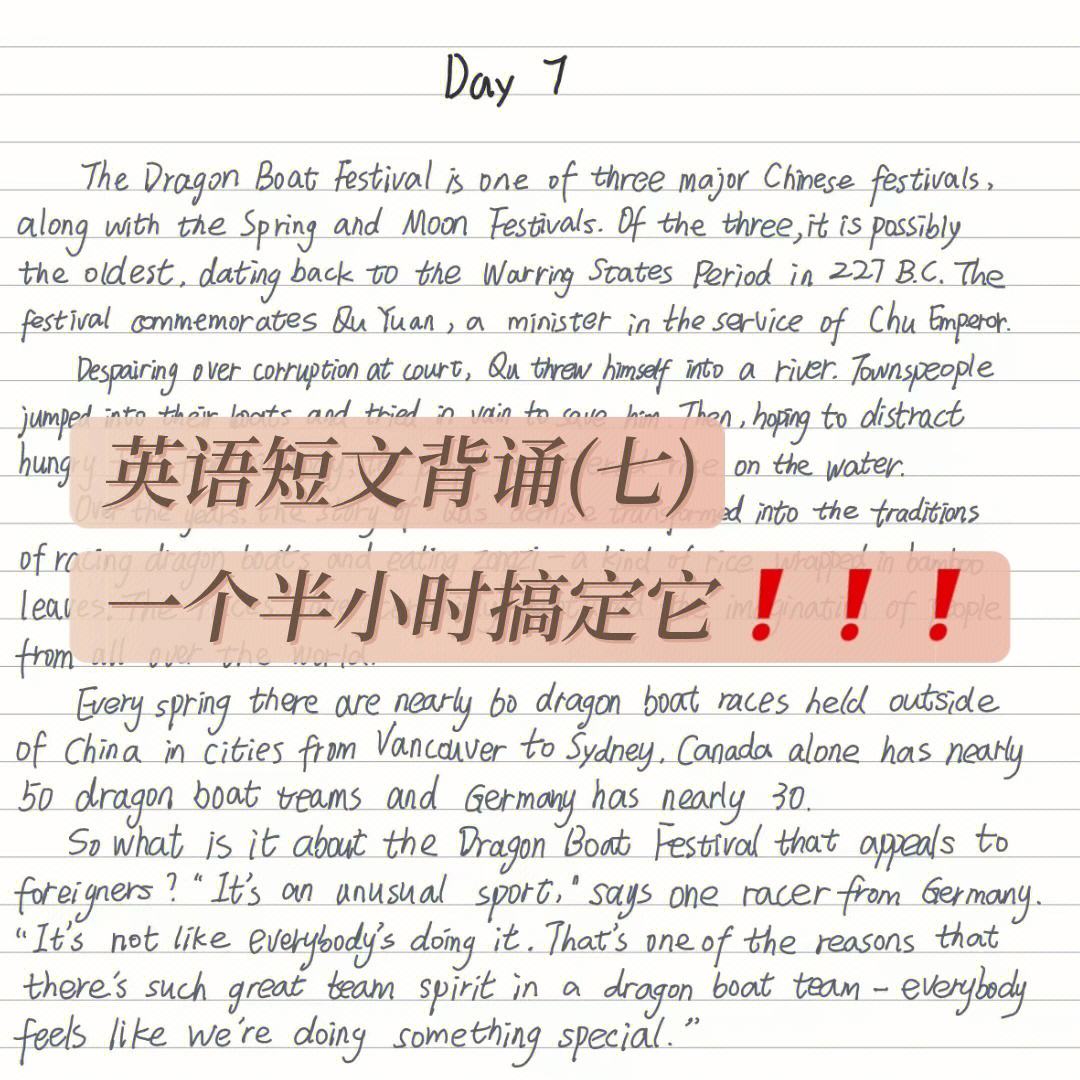 Day 7
The Dragon Boat Festival is one of three major Chinese festivals,
along with the Spring and Moon Festivals. Of the three, it is possibly
the oldest, dating back to the Warring States Period in 227 B.C. The
festival commemorates Qu Yuan, a minister in the service of Chu Emperor.
Despairing over corruption at court, Qu threw himself into a river. Townspeople
jumped into their boats and tried in vain to save him. Then, hoping to distract
hungry on the water.
英语短文背诵(七)
Over the years, the story of Qu's demise transformed into the traditions
of racing dragon boats and eating zongzi — a kind of rice wrapped in bamboo
leaves. The races have the imagination of people
一个半小时搞定它❗❗❗
from all over the world.
Every spring there are nearly 60 dragon boat races held outside
of China in cities from Vancouver to Sydney. Canada alone has nearly
50 dragon boat teams and Germany has nearly 30.
So what is it about the Dragon Boat Festival that appeals to
foreigners? "It's an unusual sport," says one racer from Germany.
"It's not like everybody's doing it. That's one of the reasons that
there's such great team spirit in a dragon boat team – everybody
feels like we're doing something special."